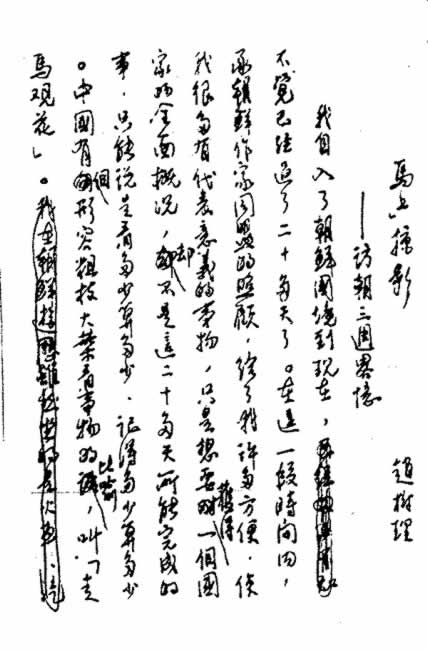 馬上掠影
——訪朝三週畧憶
趙樹理
我自入了朝鮮國境到現在，
不覺已經過了二十多天了。在這一段時间内，
承朝鮮作家同盟的照顧，給了我許多方便，使
我很多有代表意義的事物，只是想要獲得一個國
家的全面概况，却不是這二十多天所能完成的
事，只能說是看多少算多少、記得多少算多少
。中國有個形容粗枝大葉看事物的比喻，叫「走
馬观花」。